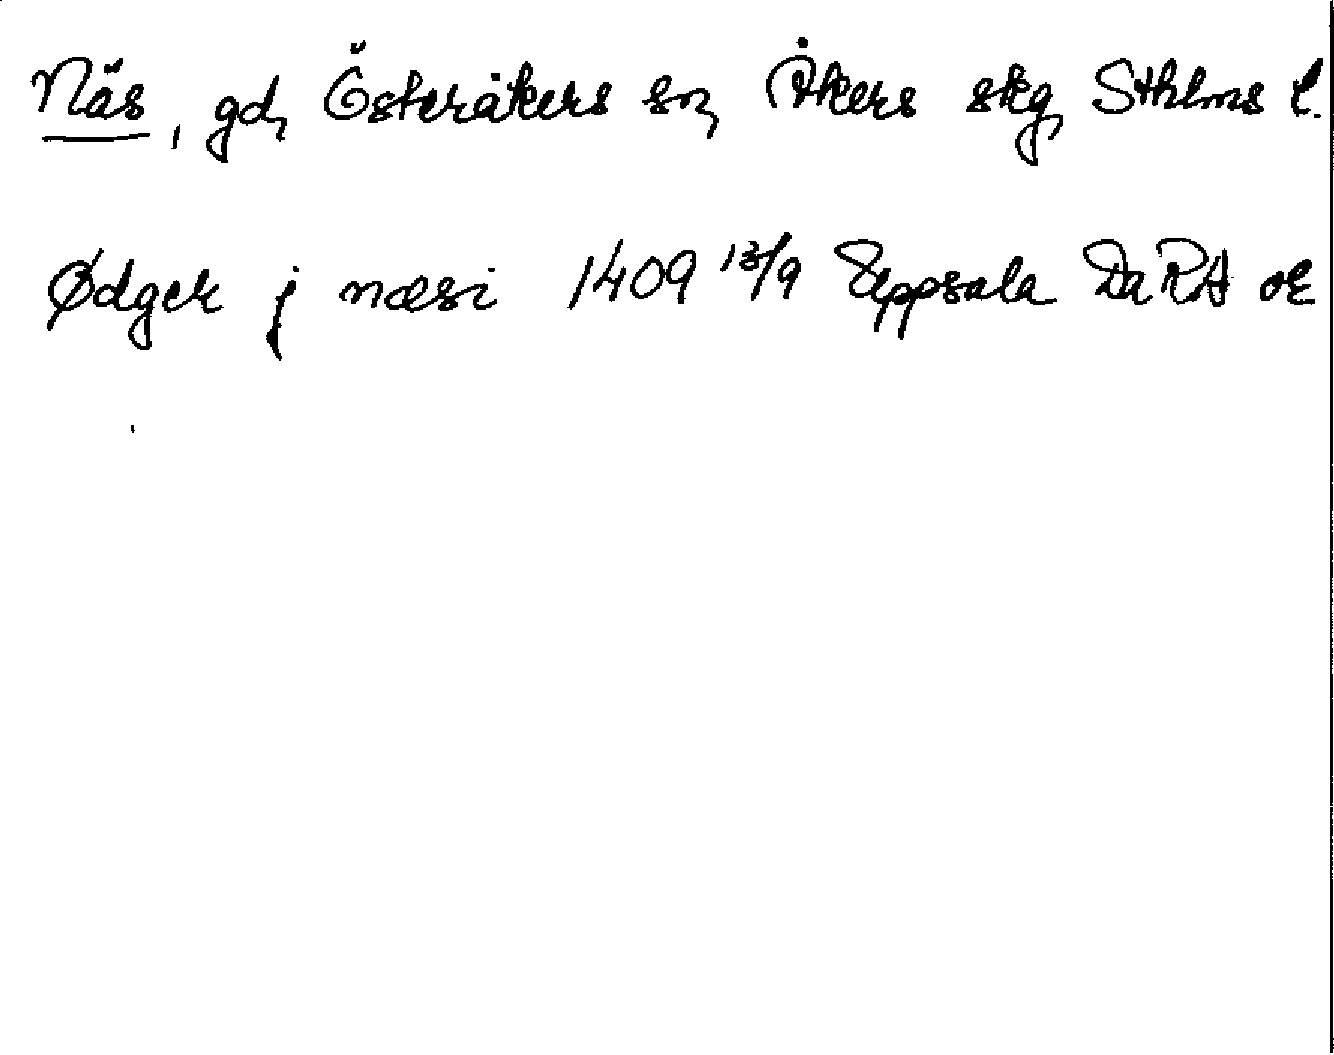 Näs, gd, Österåkers sn, Åkers skg, Sthlms l.
Ødger j næsi 1409 13/9 Uppsala Da RA or